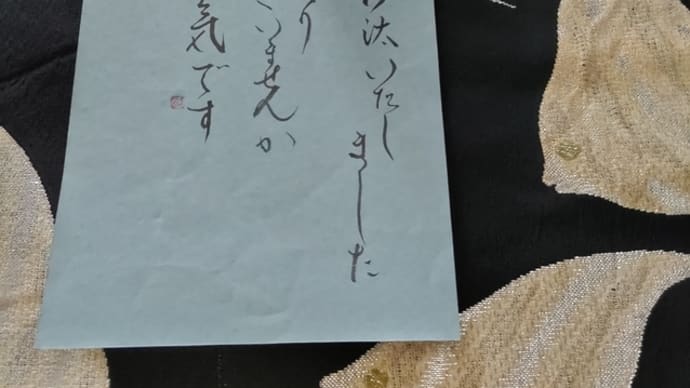 沙汰いたしました
り
いませんか
気です